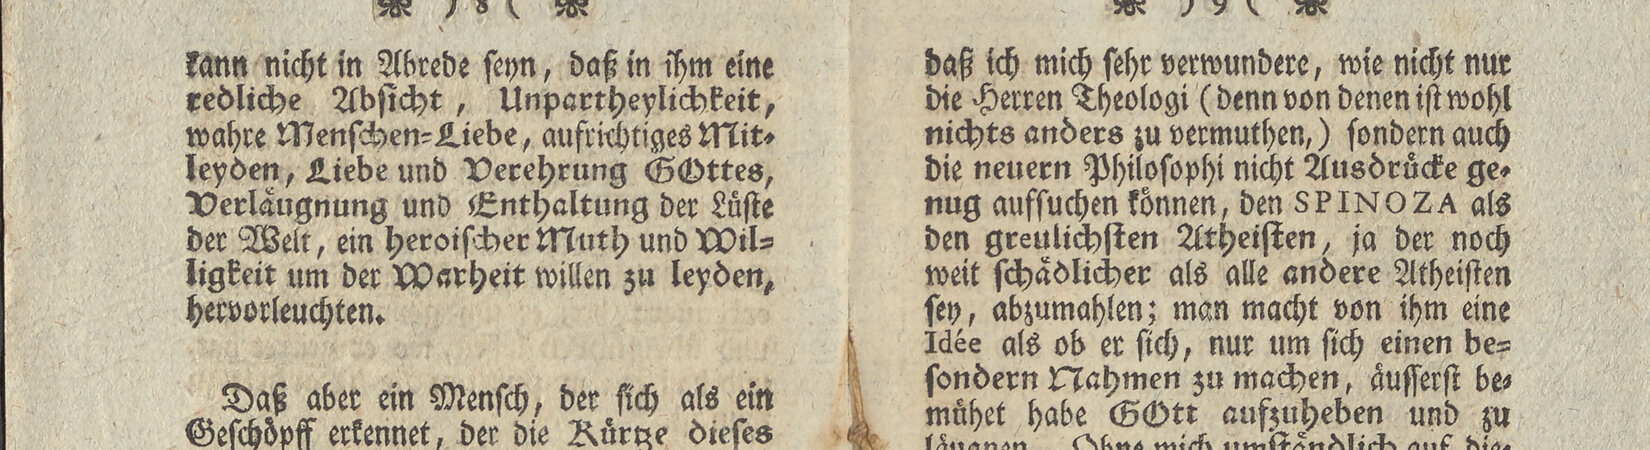 ) 8 (
kann nicht in Abrede seyn, daß in ihm eine
redliche Absicht, Unpartheylichkeit,
wahre Menschen-Liebe, aufrichtiges Mit-
leyden, Liebe und Verehrung GOttes,
Verläugnung und Enthaltung der Lüste
der Welt, ein heroischer Muth und Wil-
ligkeit um der Warheit willen zu leyden,
hervorleuchten.
Daß aber ein Mensch, der sich als ein
Geschöpff erkennet, der die Kürtze dieses
) 9 (
daß ich mich sehr verwundere, wie nicht nur
die Herren Theologi (denn von denen ist wohl
nichts anders zu vermuthen,) sondern auch
die neuern Philosophi nicht Ausdrücke ge-
nug aufsuchen können, den SPINOZA als
den greulichsten Atheisten, ja der noch
weit schädlicher als alle andere Atheisten
sey, abzumahlen; man macht von ihm eine
Idée als ob er sich, nur um sich einen be-
sondern Nahmen zu machen, äusserst be-
mühet habe GOtt aufzuheben und zu
läugnen. Ohne mich umständlich auf die-